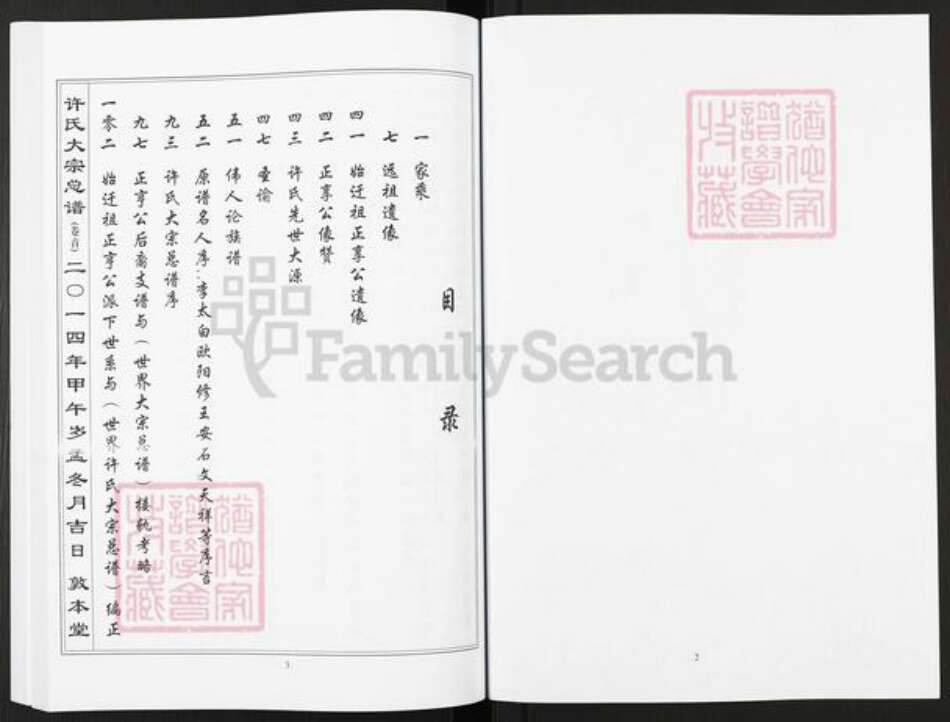 目录
一 家乘
七 远祖遗像
四一 始迁祖正享公遗像
四二 正享公像赞
四三 许氏先世大源
四七 圣谕
五一 伟人论族谱
五二 原谱名人序：李太白欧阳修王安石文天祥等序言
九三 许氏大宗总谱序
九七 正亨公后裔支谱与（世界大宗总谱）接轨考略
一零二 始迁祖正亨公派下世系与（世界许氏大宗总谱）编正
许氏大宗总谱（卷首）二〇一四年甲午岁孟冬月吉日 敦本堂
3
2
FamilySearch